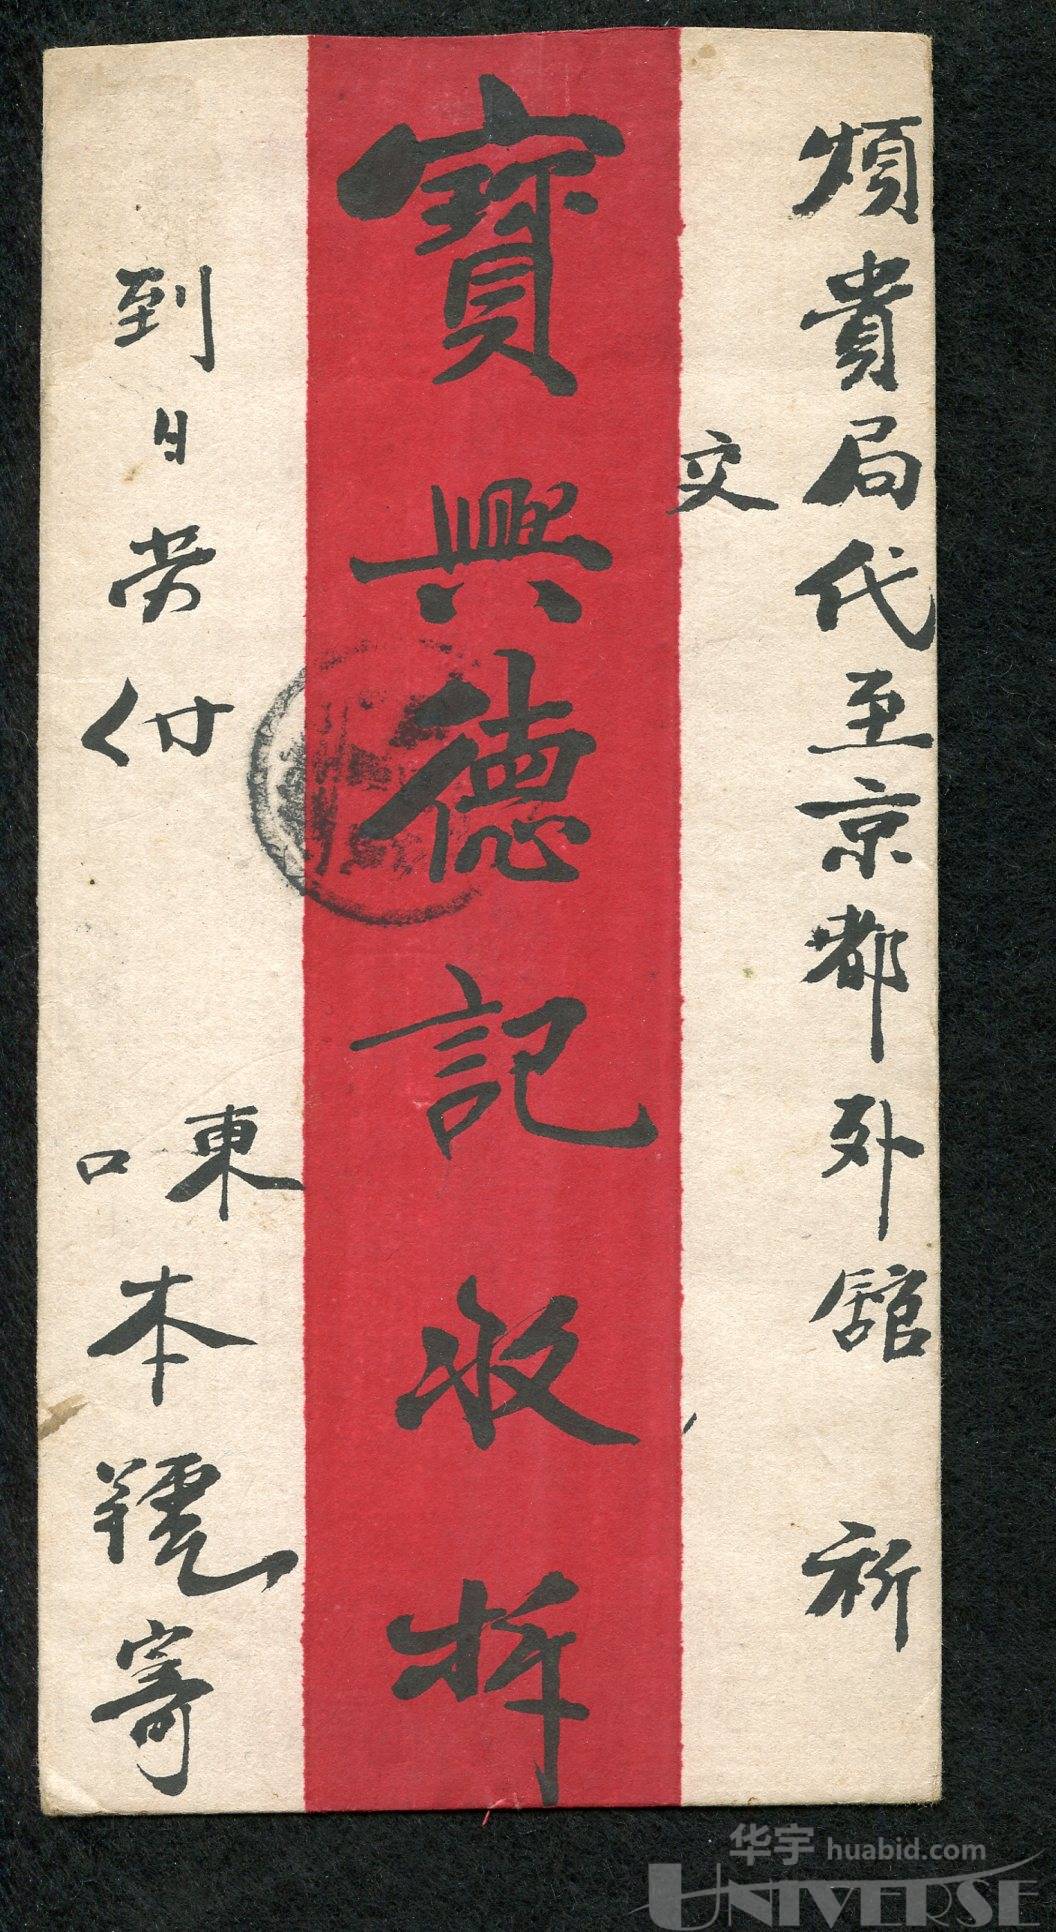 煩貴局代至京都外舘 祈
交
寶興德記收拆
到日勞付 東口本號寄
华宇 huabid.com
UNIVERSE